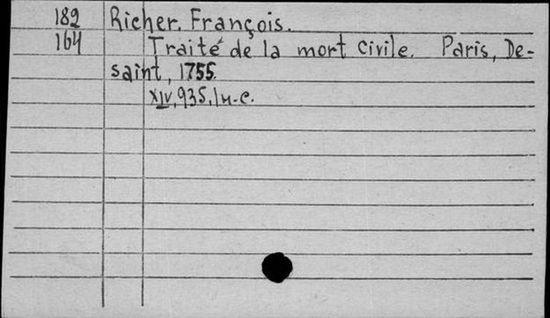 182 Richer. François.
164 Traité de la mort civile. Paris, De-
saint, 1755.
XIV, 935, 1 н.c.